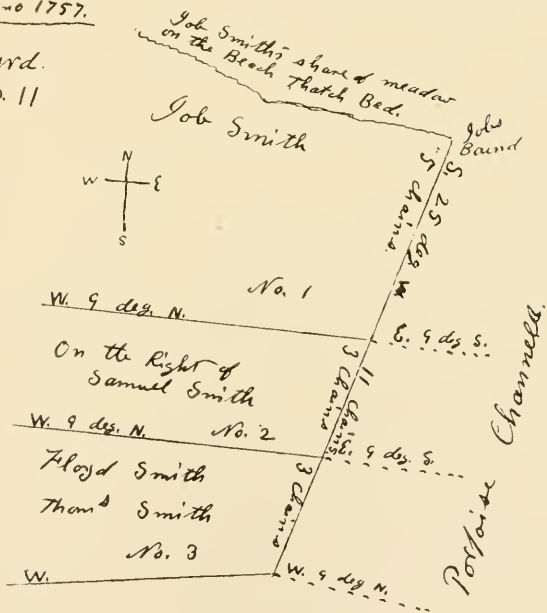 no 1757.
rd.
. 11
Job Smith's share of meadow
on the Beach Thatch Bed.
Job Smith
Jobs
Bound
N
W E
S
S. 25 deg W
5 chains.
No. 1
W. 9 deg. N.
E. 9 deg S.
On the Right of
Samuel Smith
11 chains
3 chains
No. 2
W. 9 deg. N.
E. 9 deg. S.
Floyd Smith
Thomˢ Smith
3 chains
No. 3
W.
W. 9 deg N.
Porpoise Channell.